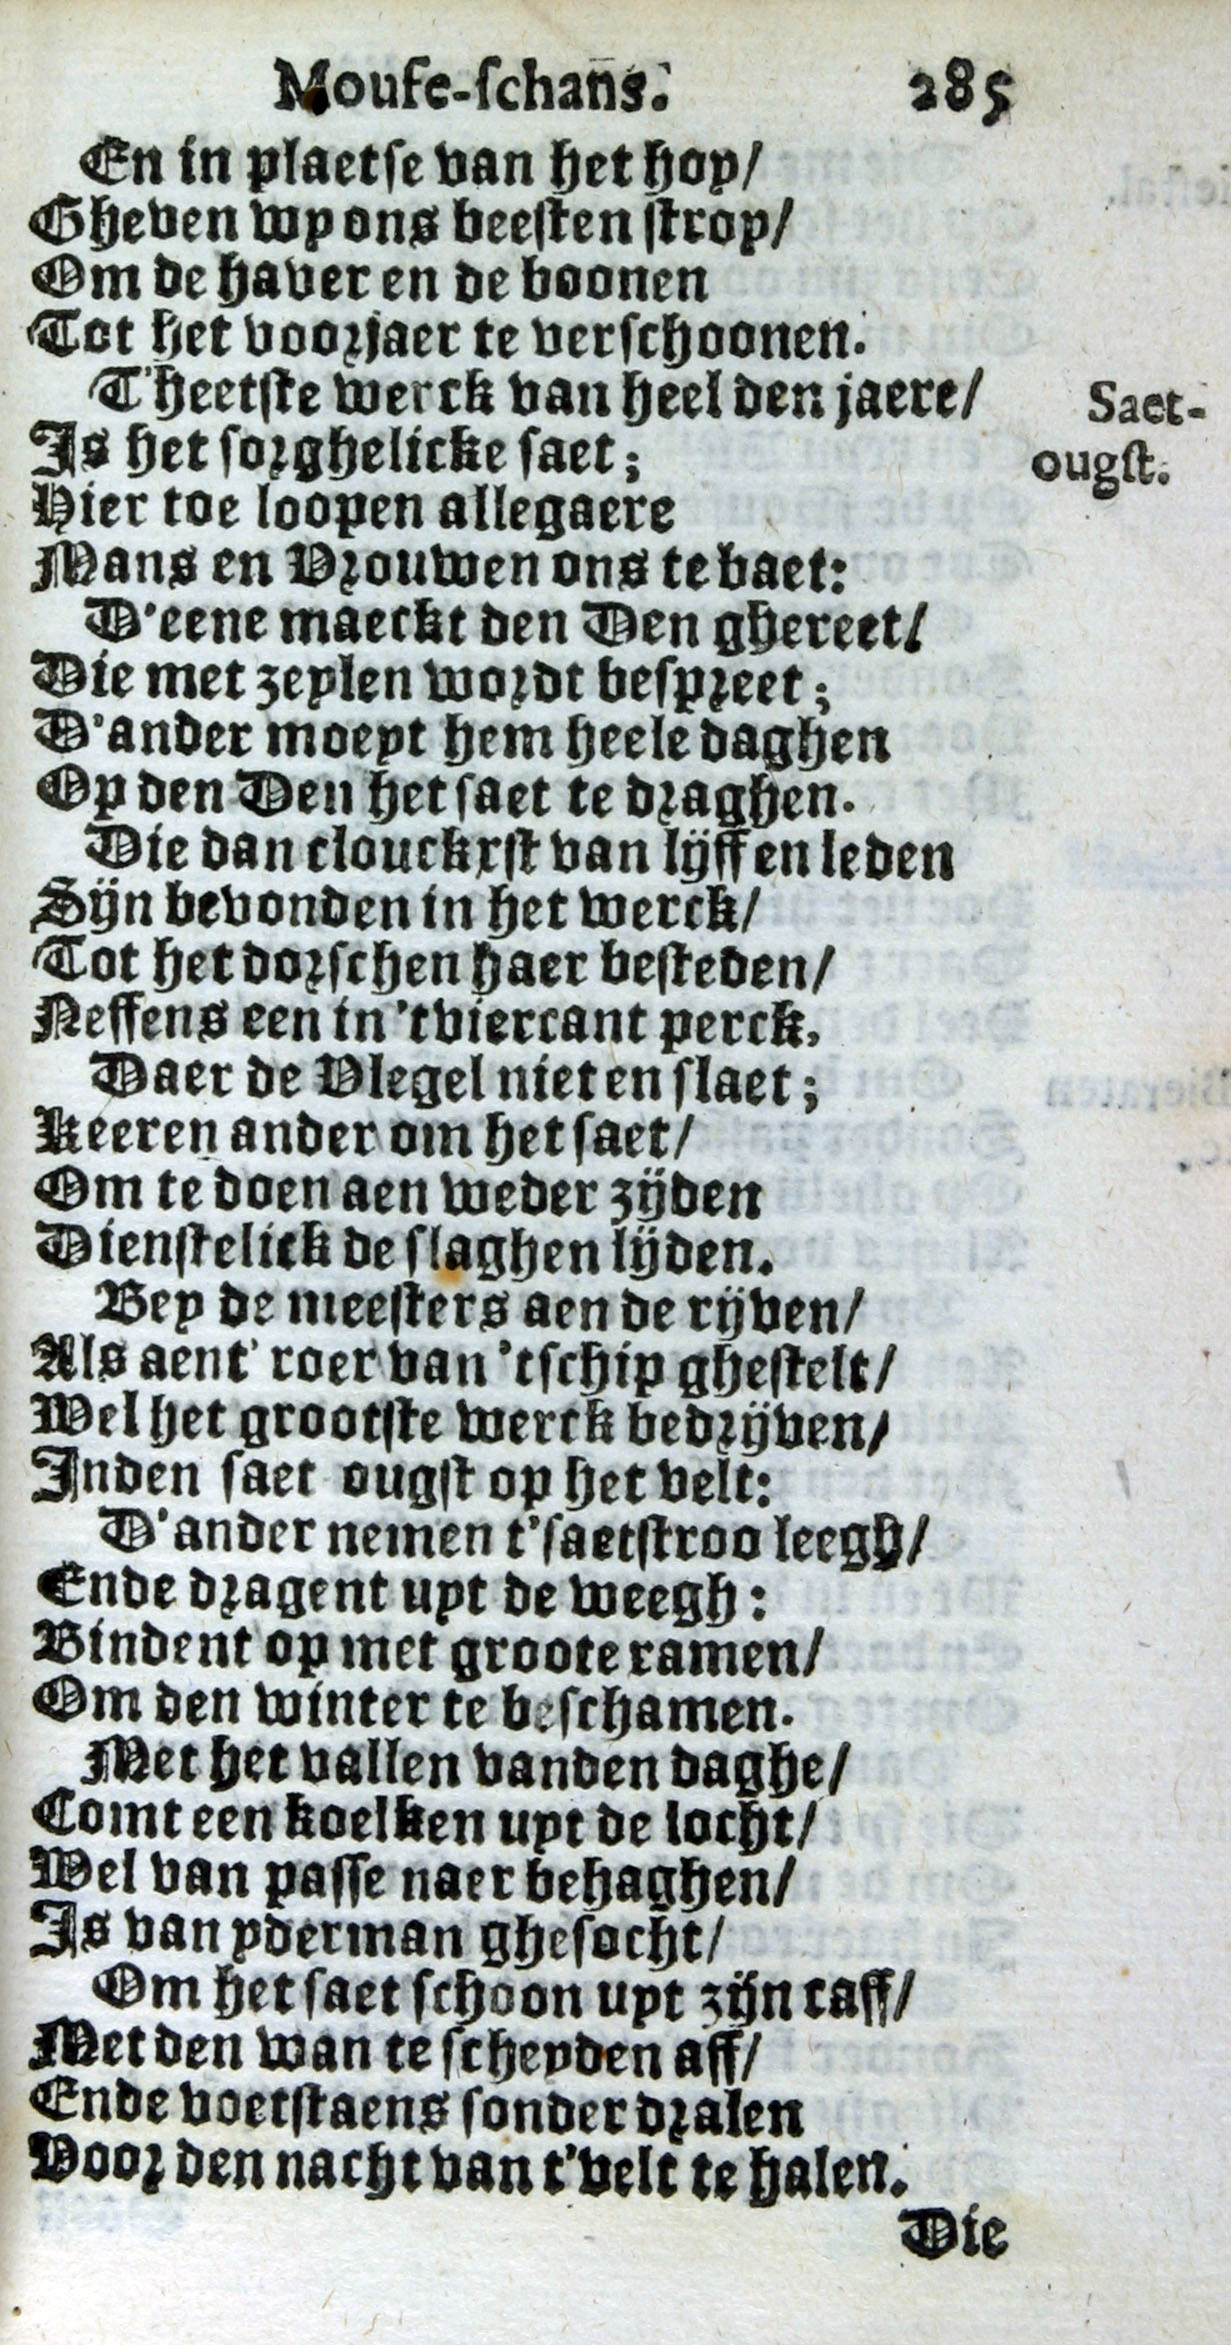 Moufe-schans. 285
En in plaetse van het hoy/
Gheven wy ons beesten stroy/
Om de haver en de boonen
Tot het voorjaer te verschoonen.
T'heetste werck van heel den jaere/
Saet-
Is het sorghelicke saet;
ougst.
Hier toe loopen allegaere
Mans en Vrouwen ons te baet:
D'eene maeckt den Den ghereet/
Die met zeylen wordt bespreet;
D'ander moeyt hem heele daghen
Op den Den het saet te draghen.
Die dan clouckxst van lijff en leden
Sijn bevonden in het werck/
Tot het dorschen haer besteden/
Neffens een in 't viercant perck,
Daer de Vlegel niet en slaet;
Keeren ander om het saet/
Om te doen aen weder zijden
Dienstelick de slaghen lijden.
Bey de meesters aen de rijven/
Als aent' roer van 't schip ghestelt/
Wel het grootste werck bedrijven/
Inden saet ougst op het velt:
D'ander nemen t'saetstroo leegh/
Ende dragent uyt de weegh:
Bindent op met groote ramen/
Om den winter te beschamen.
Met het vallen vanden daghe/
Comt een koelken uyt de locht/
Wel van passe naer behaghen/
Is van yderman ghesocht/
Om het saet schoon uyt zijn caff/
Met den wan te scheyden aff/
Ende voetstaens sonder dralen
Voor den nacht van t'velt te halen.
Die